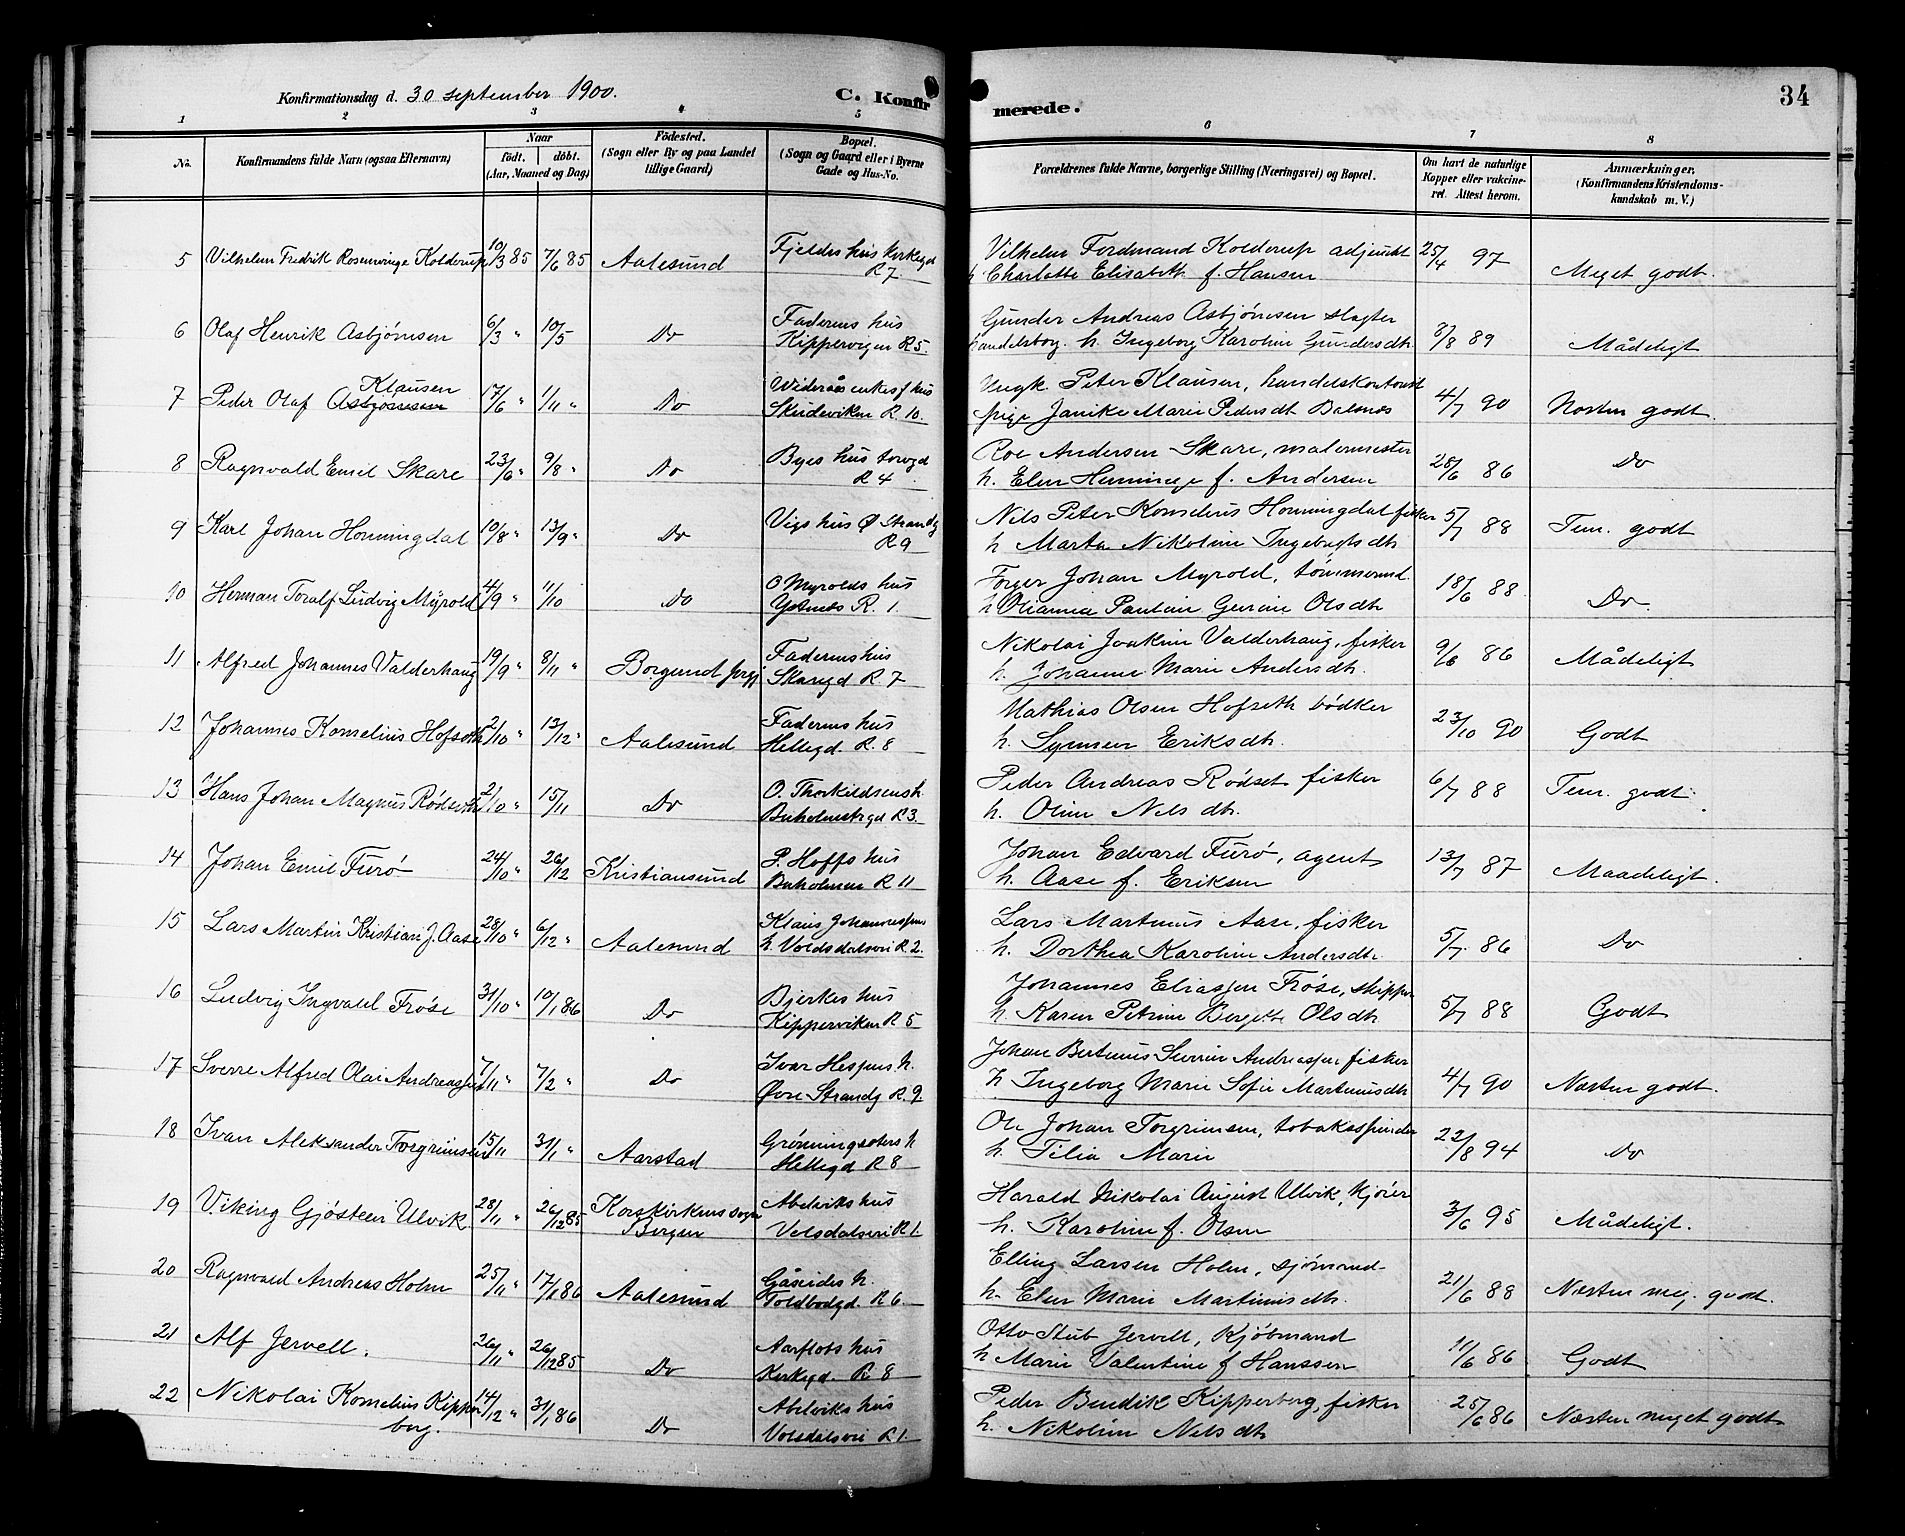 Konfirmationsdag d. 30 september 1900.
C. Konfirmerede.
34
1 2 3 4 5 6 7 8
No.
Konfirmandens fulde Navn (ogsaa Efternavn)
Naar
födt. döbt.
(Aar, Maaned og Dag)
Födested.
(Sogn eller By og paa Landet tillige Gaard)
Bopæl.
(Sogn og Gaard eller i Byerne Gade og Hus-No.
Forældrenes fulde Navne, borgerlige Stilling (Næringsvei) og Bopæl.
Om havt de naturlige Kopper eller vakcineret. Attest herom.
Anmærkninger.
(Konfirmandens Kristendomskundskab m. V.)
5 Vilhelm Fredrik Rosenvinge Kolderup 10/3 85 7/6 85 Aalesund Fjeldes hus Kirkegd R 7 Vilhelm Ferdinand Kolderup adjunkt 25/4 97 Meget godt.
h Charlotte Elisabeth f. Hansen
6 Olaf Henrik Asbjørnsen 6/3 " 10/5 Do Faderens hus Kippervigen R 5. Gunder Andreas Asbjørnsen slagter 8/8 89 Mådeligt
handelsborg. h. Ingeborg Karoline Gundersdtr.
7 Peder Olaf Asbjørnsen Klausen 17/6 " 1/11 " Do Widerøes enkes hus Skudeviken R. 10. Ungk. Peter Klausen, handelskontorist 4/7 90 Næsten godt.
pige Janike Marie Pedersdt Balsnes
8 Ragnvald Emil Skare 23/6 " 9/8 " Do Byes hus torvgd R 4 Roe Andersen Skare, malermester 28/6 86 Do
h. Elen Henninge f. Andersen
9 Karl Johan Honningdal 10/8 " 13/9 " Do Vigs hus Ø Strandg R 9 Nils Peter Kornelius Honningdal fisker 5/7 88 Tem. godt
h Marta Nikoline Ingebrigtsdtr
10 Herman Toralf Ludvig Myrold 4/9 " 11/10 Do O Myrolds hus R. 1. Johan Myrold, tømmermd. 18/6 88 Do.
h Oliania Pauline Gurine Olsdtr
11 Alfred Johannes Valderhaug 19/9 " 8/11 " Borgund prgj Faderens hus Skaregd R. 7 Nikolai Joakim Valderhaug, fisker 9/6 86 Mådeligt
h. Johanne Marie Andersdtr.
12 Johannes Kornelius Hofseth 2/10 " 13/12 " Aalesund Faderens hus Hellegd R. 8 Mathias Olsen Hofseth bødker 23/10 90 Godt
h. Synneve Eriksdtr.
13 Hans Johan Magnus Rødseth 2/10 " 15/11 Do O. Thorkildsens h. Buholmstrgd R 3. Peder Andreas Rødset fisker 6/7 88 Tem. godt
h. Oline Nilsdtr.
14 Johan Emil Furø 24/10 " 26/12 Kristiansund P. Hoffs hus Buholmen R 11 Johan Edvard Furø, agent 13/7 87 Maadeligt.
h. Aase f. Eriksen
15 Lars Martin Kristian J. Aase 28/10 " 6/12 " Aalesund Klaus Johannessens h. Voldsdalsvei R 2. Lars Martinus Aase, fisker 5/7. 86 Do
h. Dorthea Karoline Andersdtr.
16 Ludvig Ingvald Frøse 31/10 " 10/1 86 Do Bjerkes hus Kipperviken R 5 Johannes Eliassen Frøse, skipper 5/7 88 Godt
h. Karen Petrine Bergette Olsdtr
17 Sverre Alfred Olai Andreassen 7/11 " 7/2 " Do Ivar Hessens h. Øvre Strandg R. 9 Johan Bertinus Severin Andreassen fisker 4/7 90 Næsten godt.
h. Ingeborg Marie Sofie Martinusdtr
18 Ivan Aleksander Torgrimsen 15/11 31/1 " Aarstad Grønningsæters h Hellegd R 8 Ole Johan Torgrimsen, tobaksspinder 22/8 94 Do
h. Tilia Marie
19 Viking Gjøsteen Ulvik 28/11 " 26/12 85 Korskirkens sogn Bergen Abelviks hus Volsdalsvei R 1. Harald Nikolai August Ulvik, kjører 3/6 95 Mådeligt.
h. Karoline f. Olsen
20 Ragnvald Andreas Holm 25/11 " 17/1 86 Aalesund Gåseides h. Toldbodgd. R 6. Elling Larsen Holm, sjømand 21/6 88 Næsten meg. godt.
h. Elen Marie Martinusdtr.
21 Alf Jervell. 26/11 " 26/12 85 Do Aarflots hus Kirkgd. R 8 Otto Stub Jervell, Kjøbmand 11/6 86 Godt
h Marie Valentine f Hanssen
22 Nikolai Kornelius Kipperberg. 14/12 " 31/1 86 Do Abelviks hus Volsdalsvei R 1. Peder Bendik Kipperberg, fisker 25/6 86 Næsten meget godt
h. Nikoline Nilsdtr